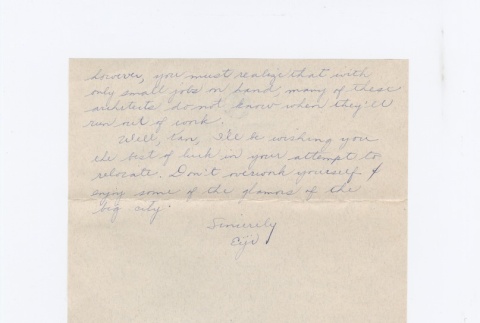 however, you must realize that with
only small jobs on hand many of these
architects do not know when they'll
run out of work.
Well, Tan, I'll be wishing you
the best of luck in your attempt to
relocate. Don't overwork yourself &
enjoy some of the glamors of the
big city.
Sincerely